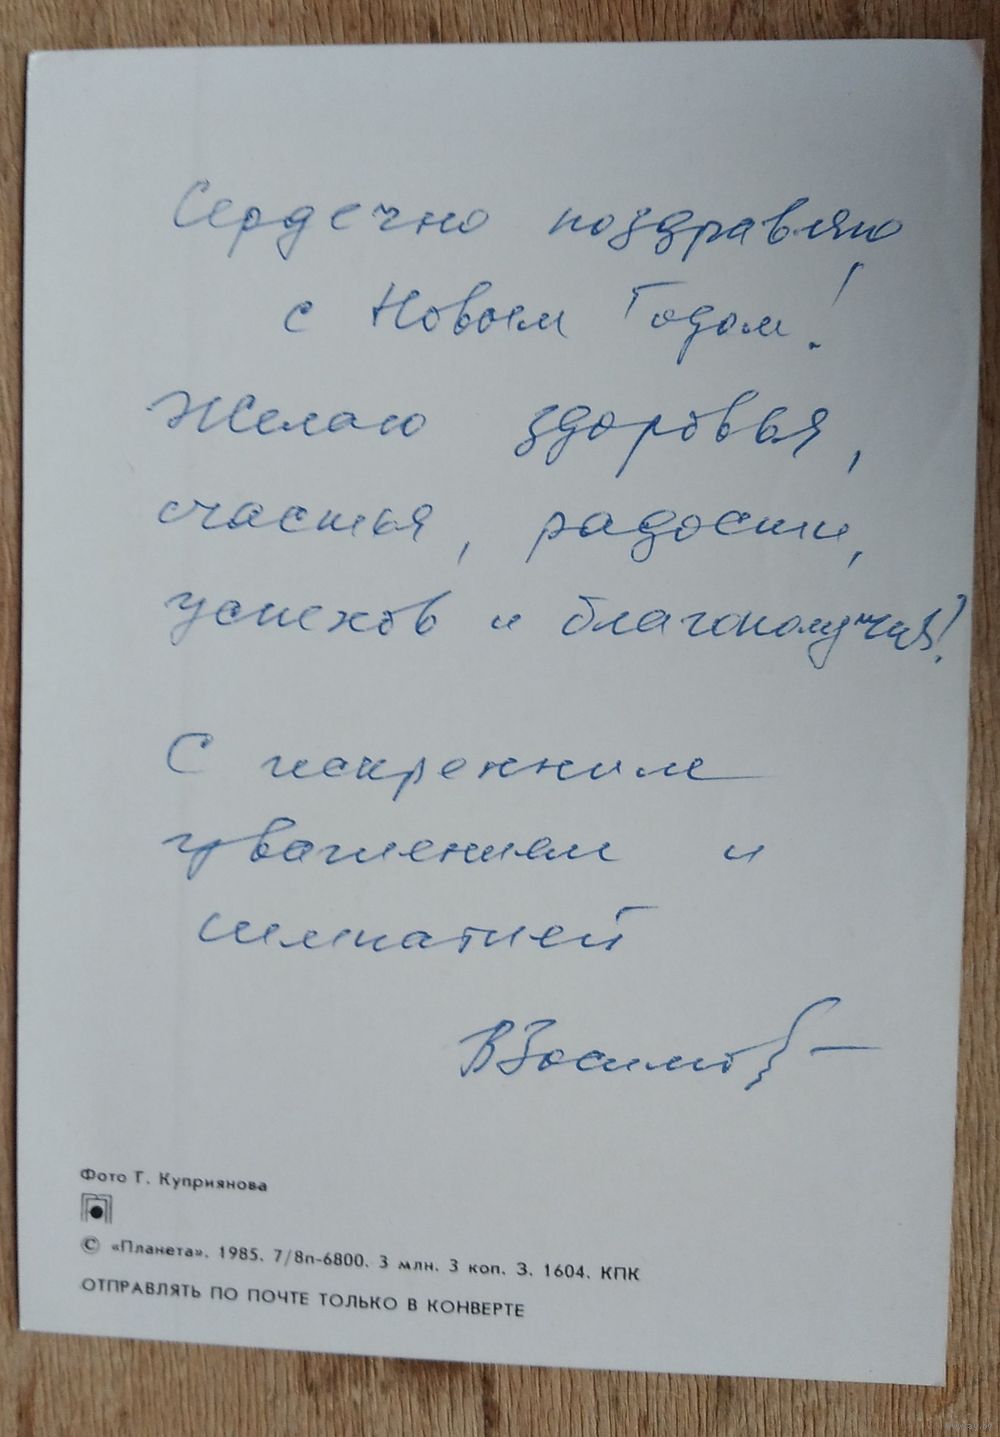 Сердечно поздравляю
с Новым Годом!
Желаю здоровья,
счастья, радости,
успехов и благополучия!
С искренним
уважением и
симпатией
В
Фото Г. Куприянова
© «Планета». 1985. 7/8п-6800. 3 млн. 3 коп. З. 1604. КПК
ОТПРАВЛЯТЬ ПО ПОЧТЕ ТОЛЬКО В КОНВЕРТЕ